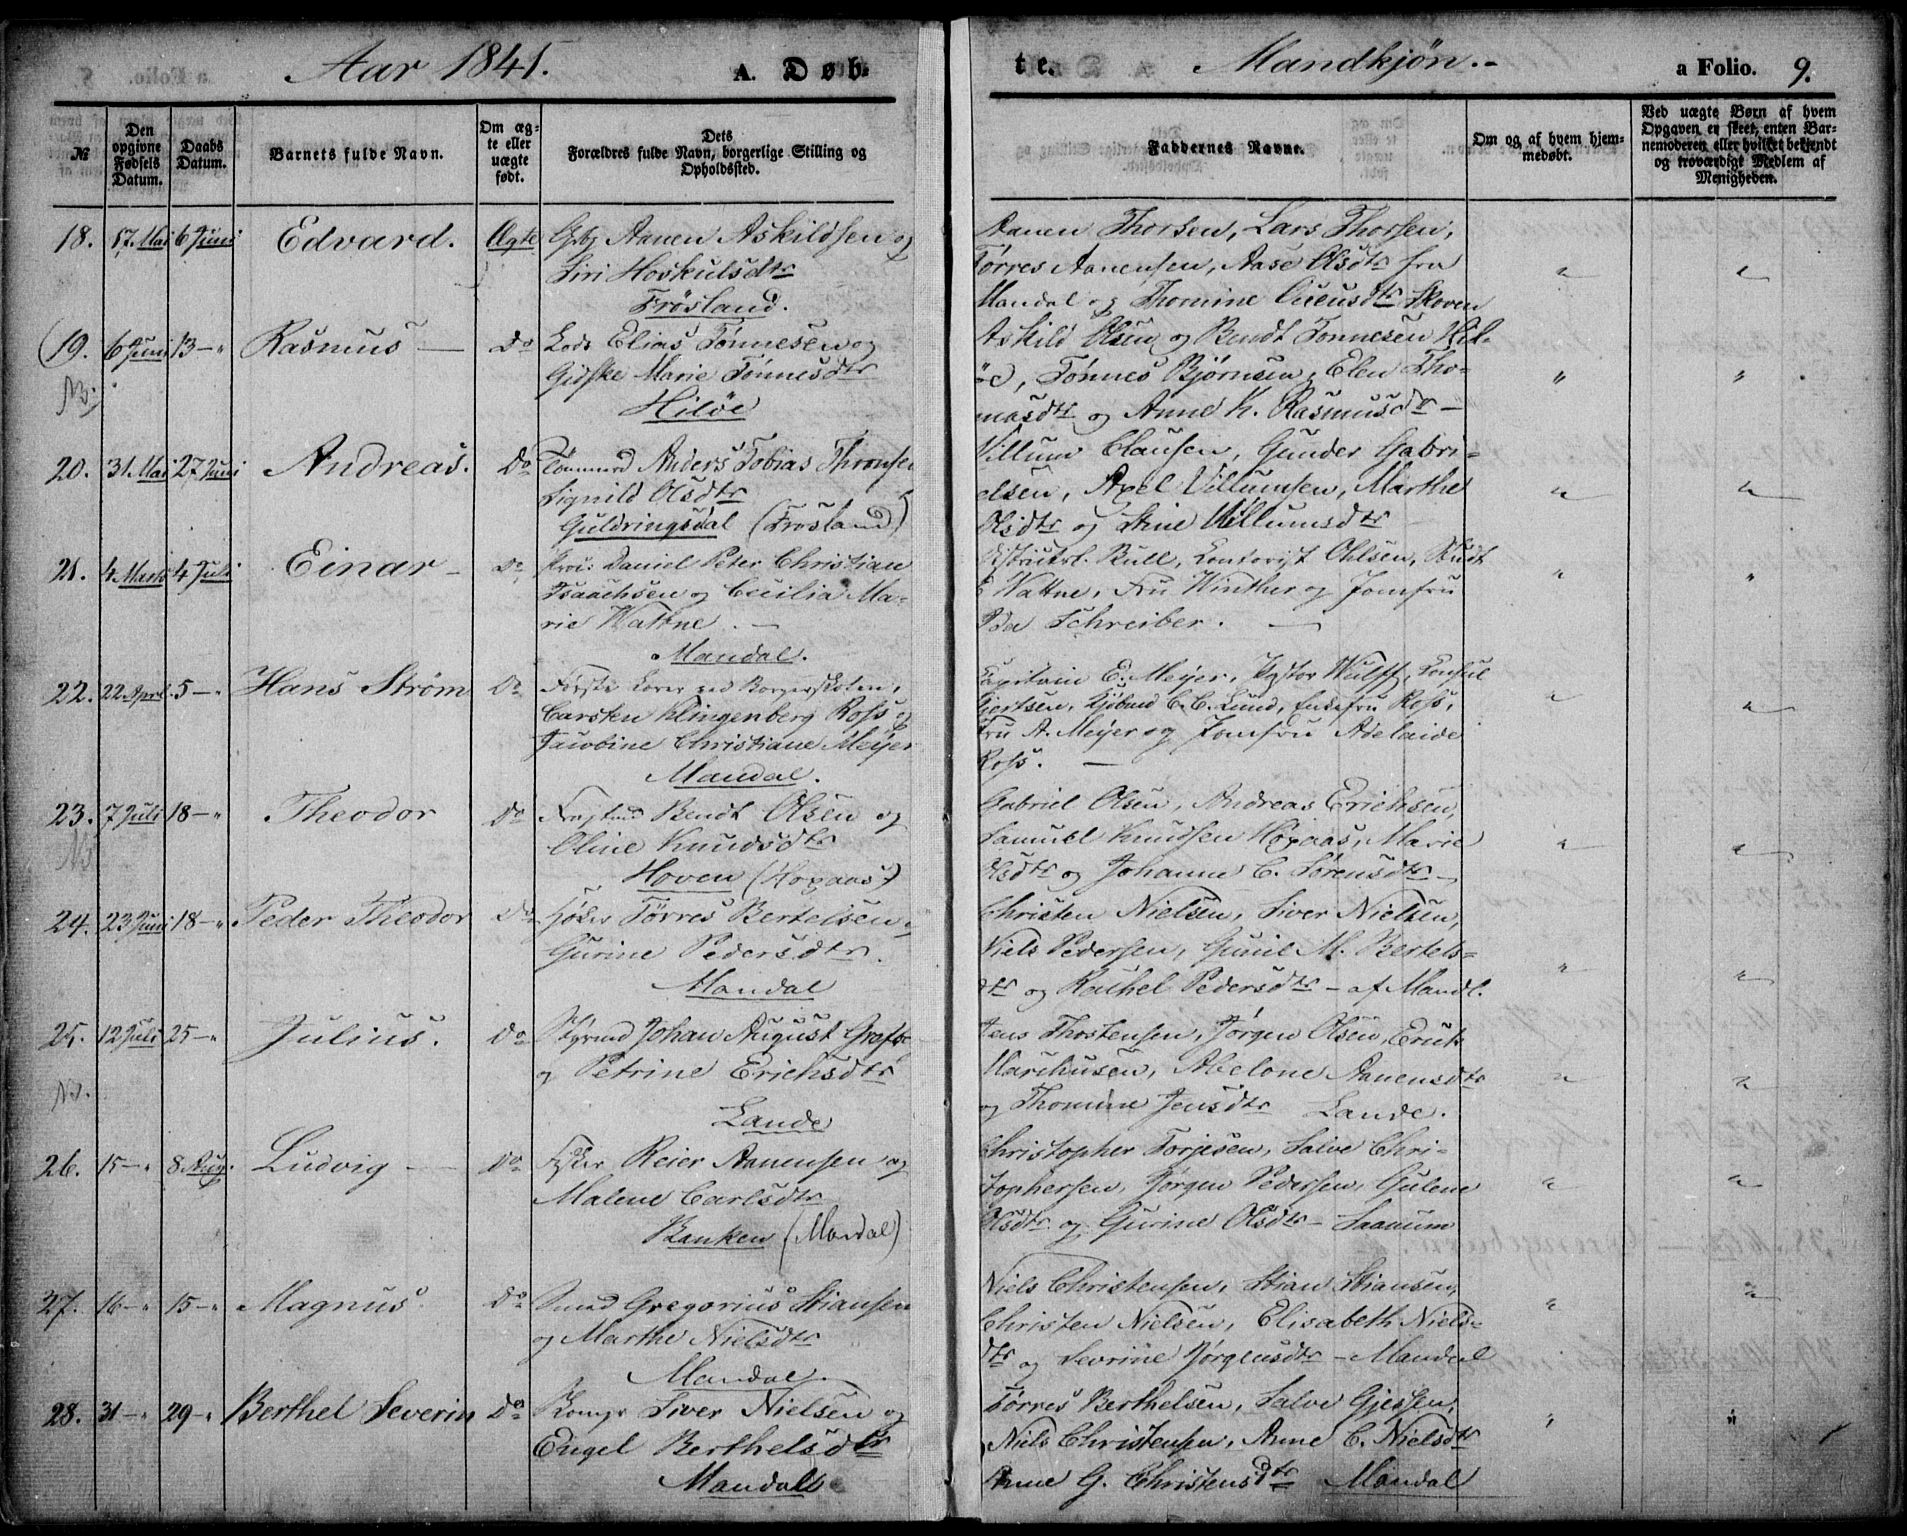 Aar 1841. A. Døb-
te. Mandkjøn. a Folio. 9.
№
Den opgivne Fødsels Datum.
Daabs Datum.
Barnets fulde Navn.
Om æg-
te eller
uægte
født.
Dets
Forældres fulde Navn, borgerlige Stilling og
Opholdssted.
Faddernes Navne.
Om og af hvem hjem-
medøbt.
Ved uægte Børn af hvem
Opgaven er skeet, enten Bar-
nemoderen eller hvilket bekjendt
og troværdigt Medlem af
Menigheden.
18. 17. Mai 6 Juni Edvard. Ægte Gbr Aanen Askildsen og
Siri Hoskulsdtr
Frösland.
Aanen Thorsen, Lars Thorsen,
Tørres Aanensen, Aase Olsdtr fra
Mandal og Thomine Skoven
19. 6 Juni 13 - " Rasmus - Do Lods Elias Tönnesen og
Gidske Marie Tönnesdtr
Hilöe
Askild Olsen og Bendt Tonnesen Hil-
öe, Tónnes Björnsen, Elen Tho-
masdtr og Anne K. Rasmusdtr -
20. 31. Mai 27 Juni Andreas. Do Tömmermd Anders Tobias Thronsen
Signild Olsdtr
Guldringsdal (Frosland)
Villum Clausen, Gunder Gabri-
elsen, Axel Villumsen, Marthe
Olsdtr og Stine Villumsdtr
21. 4 Marts 4 Juli Einar - Do Daniel Peter Christian
Isaachsen og Cecilia Ma-
rie Wattne. -
Mandal.
Bull, Contorist Ohlsen, Studt
Wattne, Fru Winther og Jomfru
Ida Schreiber. -
22. 22 April 5 - " Hans Strøm Do Første Lærer ved Borgerskolen,
Carsten Klingenberg Ross og
Jacobine Christiane Meyer
Mandal.
Capitain E. Meyer, Pastor Wulff, Consul
Gjertsen, Kjöbmd C. C. Lund, Enkefru Ross,
Fru A. Meyer og Jomfru Adelaide
Ross. -
23. 7 Juli 18 - " Theodor Do Bendt Olsen og
Oline Knudsdtr
Hoven (Hoxaas)
Gabriel Olsen, Andreas Erichsen,
Samuel Knudsen Hoxaas, Marie
Olsdtr og Johanne C. Sörensdtr -
24. 23 Juni 18 - " Peder Theodor Do Höker Törres Bertelsen og
Gurine Pedersdtr.
Mandal
Christen Nielsen, Siver Nielsen,
Niels Pedersen, Gunil M. Bertels-
dtr og Rachel Pedersdtr - af Mandl.
25. 12 Juli 25 - " Julius. Do Styrmd Johan August
og Petrine Erichsdtr
Lande
Jens Thostensen, Jörgen Olsen, Erich
Marchusen, Abelone Aanensdtr
og Thomine Jensdtr Lande.
26. 15 - " 8 Aug. Ludvig - Do Reier Aanensen og
Malene Carlsdtr
Banken (Mandal)
Christopher Torjesen, Salve Chri-
stophersen, Jörgen Pedersen, Gulene
Olsdtr og Gurine Olsdtr - Sanum
27. 16 - " 15 - " Magnus. Do Smed Gregorius Stiansen
og Marthe Nielsdtr
Mandal.
Niels Christensen, Stian Stiansen,
Christen Nielsen, Elisabeth Niels-
dtr og Sevrine Jörgensdtr - Mandal
28. 31 - " 29 - " Berthel Severin Do Siver Nielsen og
Engel Berthelsdtr
Mandal
Törres Berthelsen, Salve Gjessen,
Niels Christensen, Anne C. Nielsdtr
Anne G. Christensdtr Mandal